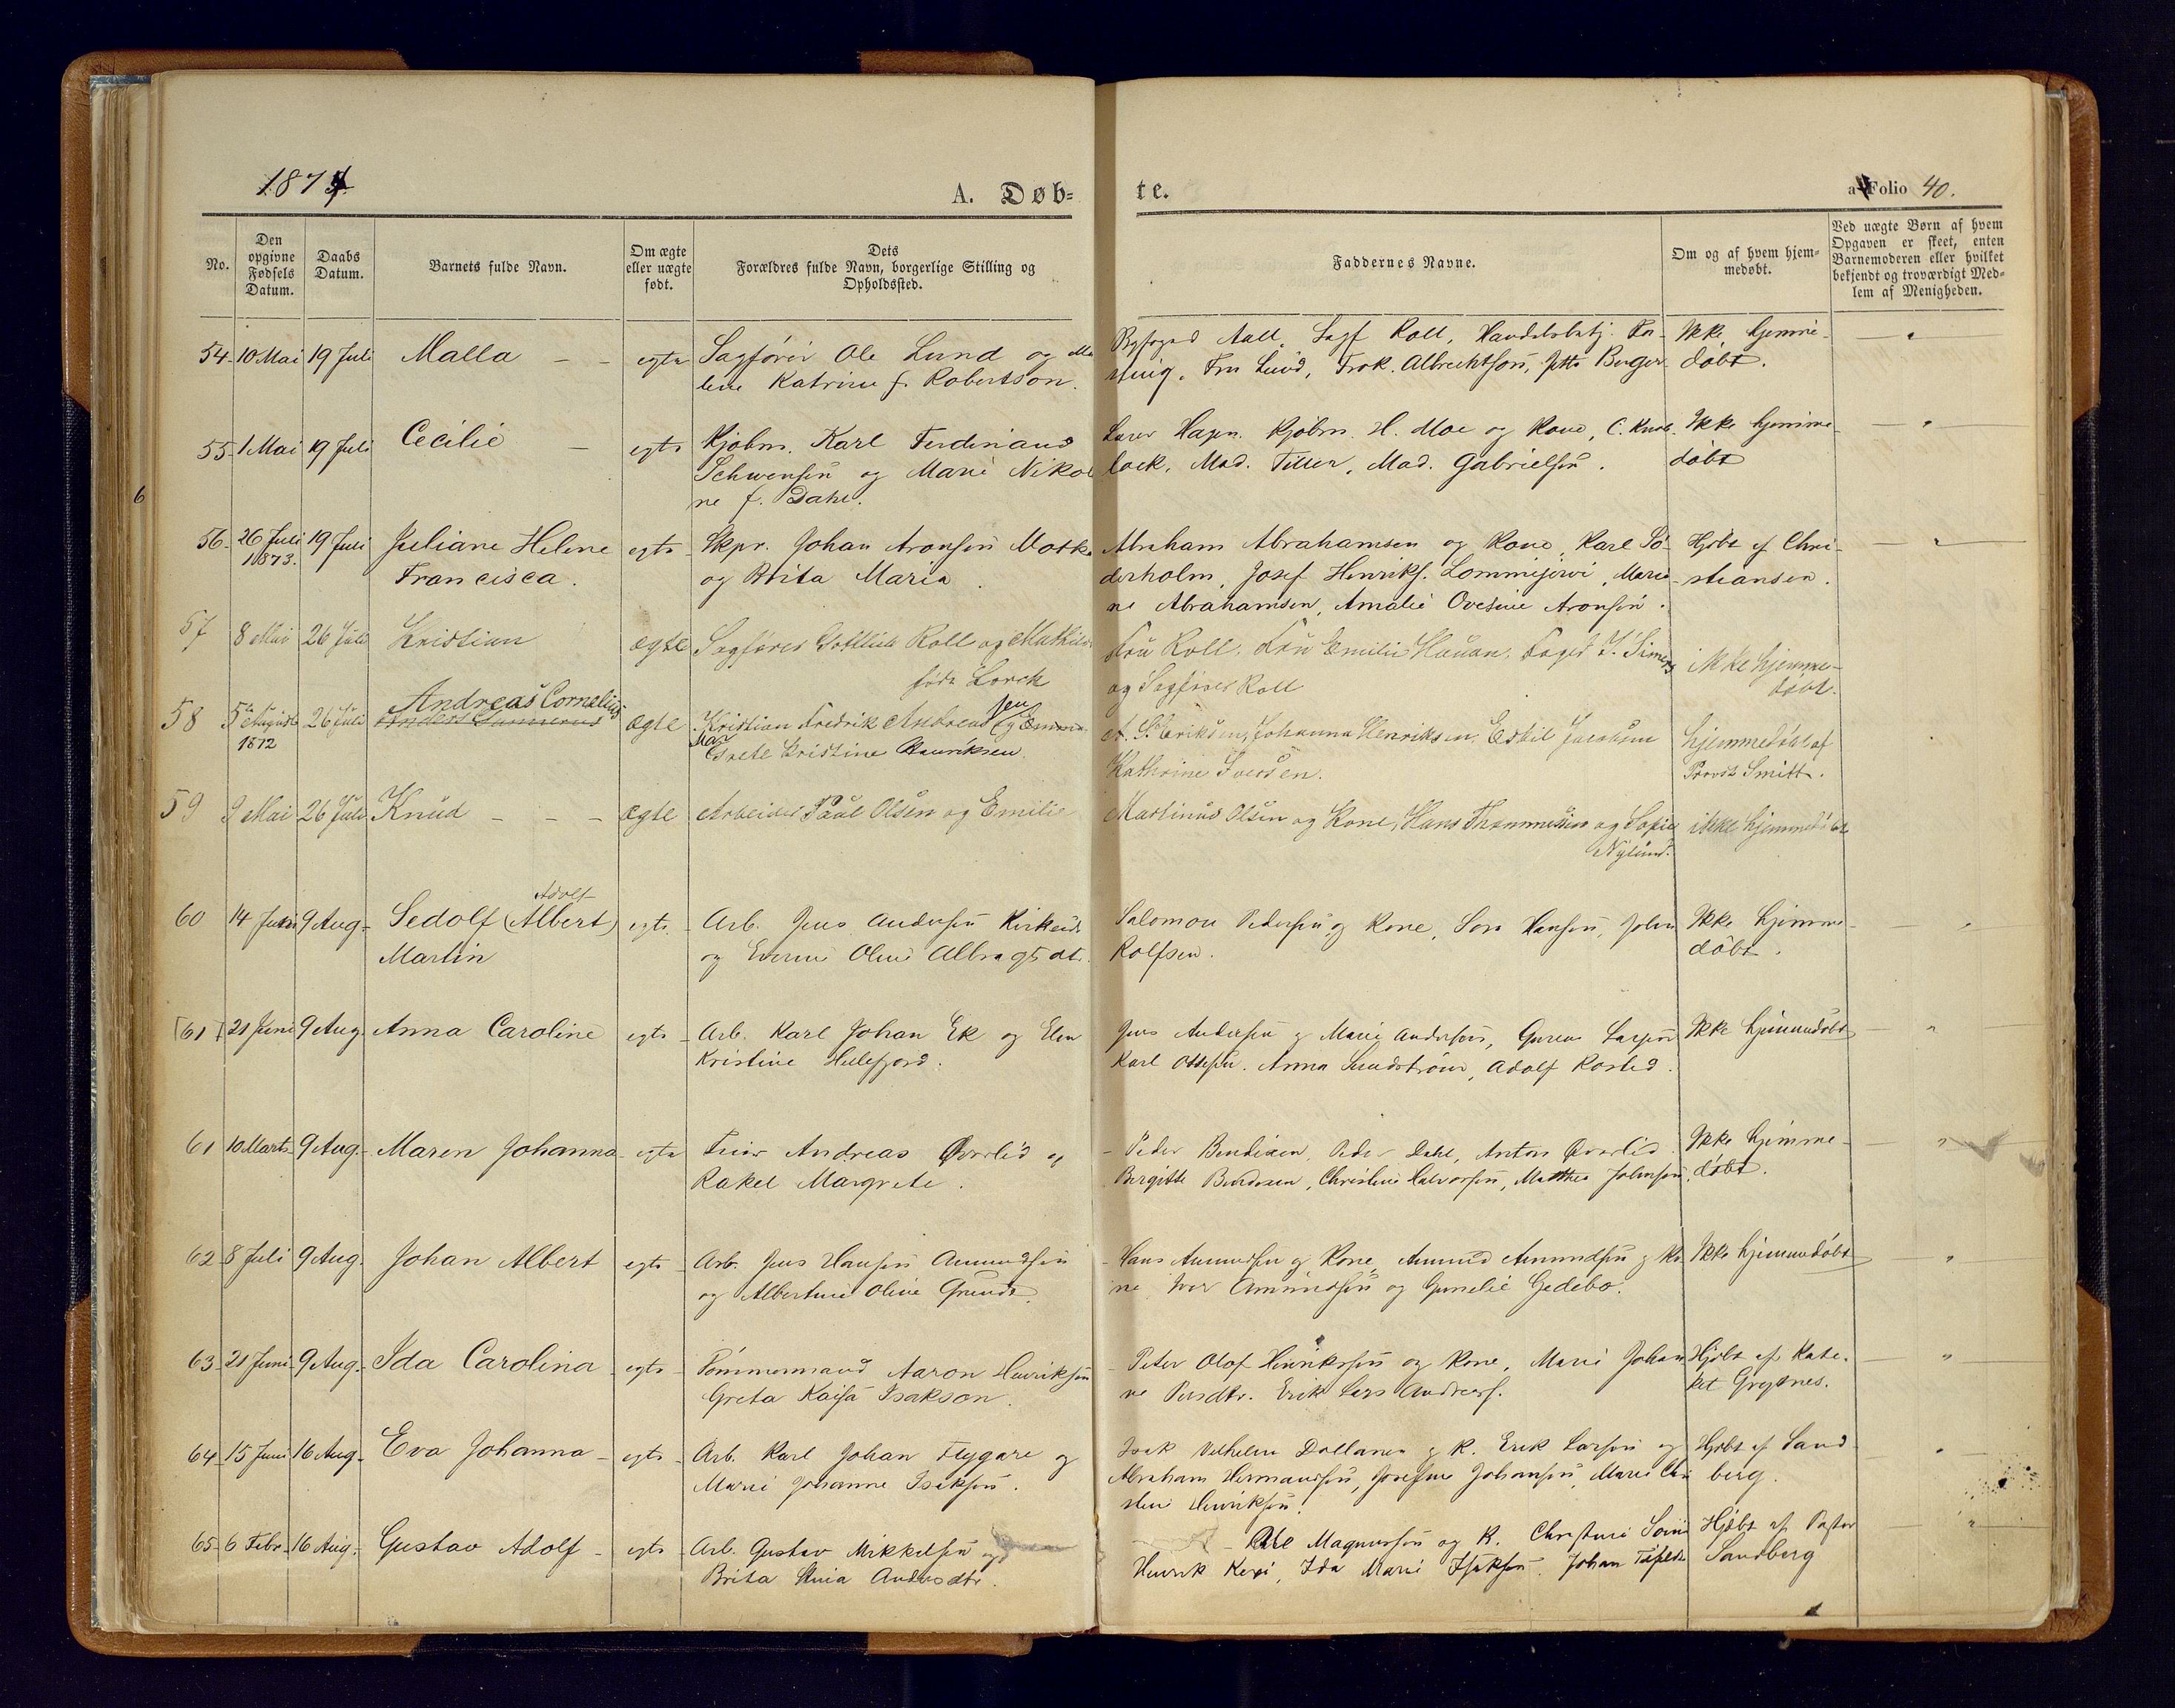 1874.
A. Døb=
te.
Folio 40.
No.
Den opgivne Fødsels Datum.
Daabs Datum.
Barnets fulde Navn.
Om ægte eller uægte født.
Dets
Forældres fulde Navn, borgerlige Stilling og
Opholdssted.
Faddernes Navne.
Om og af hvem hjem=
medøbt.
Ved uægte Børn af hvem
Opgaven er skeet, enten
Barnemoderen eller hvilket
bekjendt og troværdigt Med=
lem af Menigheden.
6
54 10 Mai 19 Juli Malla egte Sagfører Ole Lund og Ma
lene Katrine f. Robertson.
Byfoged Aall, Sagf Roll, Handelsbetj.
Fru Lund, Frøk. Albrechtson, Jette Berger
Ikke hjemme-
døbt.
55 1 Mai 19 Juli Cecilie egte Kjøbm. Karl Ferdinand
Schwensen og Marie Nikol
ne f. Dahl.
Lærer Hagen. Kjøbm. H. Moe og Kone, C.
Mad. Tiller, Mad. Gabrielsen.
Ikke hjemme-
døbt
56 26 Juli 1873. 19 Juli Juliane Helene
Francisca.
egte Skpr. Johan Aronsen
og Brita Maria.
Abraham Abrahamsen og Kone, Karl Sö-
derholm, Josef Henriks. Lommijervi, Marie-
ne Abrahamsen, Amalie Ovesine Aronsen.
Hjdbt af Chri-
stiansen.
57 8 Mai 26 Juli Kristian ægte Sagfører Gottlieb Roll og Mathilde
født Lorck
Fru Roll. Fru Emilie Hauan. Foged
og Sagfører Roll
ikke hjemme-
døbt.
58 5te August 1872 26 Juli Andreas Cornelius
ægte Kristian Fredrik Andreassen og
Grete Kristine Henriksen
A. S. Eriksen, Johanna Henriksen, Eskil Jacobsen
Kathrine Iversen.
hjemmedøbt af
Provst Smitt.
59 9 Mai 26 Juli Knud ægte Arbeider Paul Olsen og Emilie
Martinus Olsen og Kone, Hans Thommesen og Sofie
Nylund.
ikke hjemmedøbt
60 14 Juni 9 Aug. Sedolf (Albert) Adolf
Martin
egte Arb. Jens Andersen
og Oline Albragtsdt.
Salomon Pedersen og Kone, Hansen, Johan
Rolfsen.
Ikke hjemme-
døbt.
[61] 21 Juni 9 Aug Anna Caroline egte Arb. Karl Johan Ek og Elen
Kristine Hillefjord.
Jens Andersen og Marie Andersen, Larsen
Karl Ottesen. Anna Sundström, Adolf Rosted.
Ikke hjemmedøbt
61 10 Marts 9 Aug. Maren Johanna egte Andreas Qvarlid og
Rakel Margrete.
Peder Bendixen, Peder Dahl, Anton Qvarlid.
Birgitte Bendixen, Christine Halvorsen, Mathea Johnsen.
Ikke hjemme-
døbt.
62 8 Juli 9 Aug. Johan Albert egte Arb. Jens Hansen Amundsen
og Albertine Oline
Hans Amundsen og Kone, Amund Amundsen og Ko
ne, Iver Amundsen og Gunelie Gedebo.
Ikke hjemmedøbt
63 21 Juni 9 Aug. Ida Carolina egte Tömmermand Aaron Henriksen
Greta Kaisa Isakson.
Peter Olof Henriksen og Kone, Marie Johan
ne Persdtr. Erik Lars Andreas.
Hjdbt af Kate-
ket Grytnes.
64 15 Juni 16 Aug. Eva Johanna egte Arb. Karl Johan Flygare og
Marie Johanne Isaksen.
Isak Vilhelm og K. Erik Larsen og
Abraham Hermansen, Josefine Johansen, Marie Chri
stine Henriksen.
Hjdbt af Sand
berg.
65 6 Febr. 16 Aug. Gustav Adolf egte Arb. Gustav Mikkelsen og
Brita Andersdtr.
Ole Magnussen og K. Christine
Henrik Keri, Ida Marie Isaksen. Johan
Hjdbt af Pastor
Sandberg